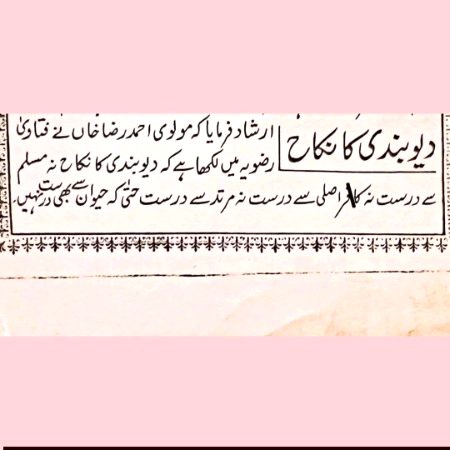 دیوبندی کا نکاح
ارشاد فرمایا کہ مولوی احمد رضا خاں نے فتاویٰ
رضویہ میں لکھا ہے کہ دیوبندی کا نکاح نہ مسلم
سے درست نہ کافر اصلی سے درست نہ مرتد سے درست حتیٰ کہ حیوان سے بھی درست نہیں۔